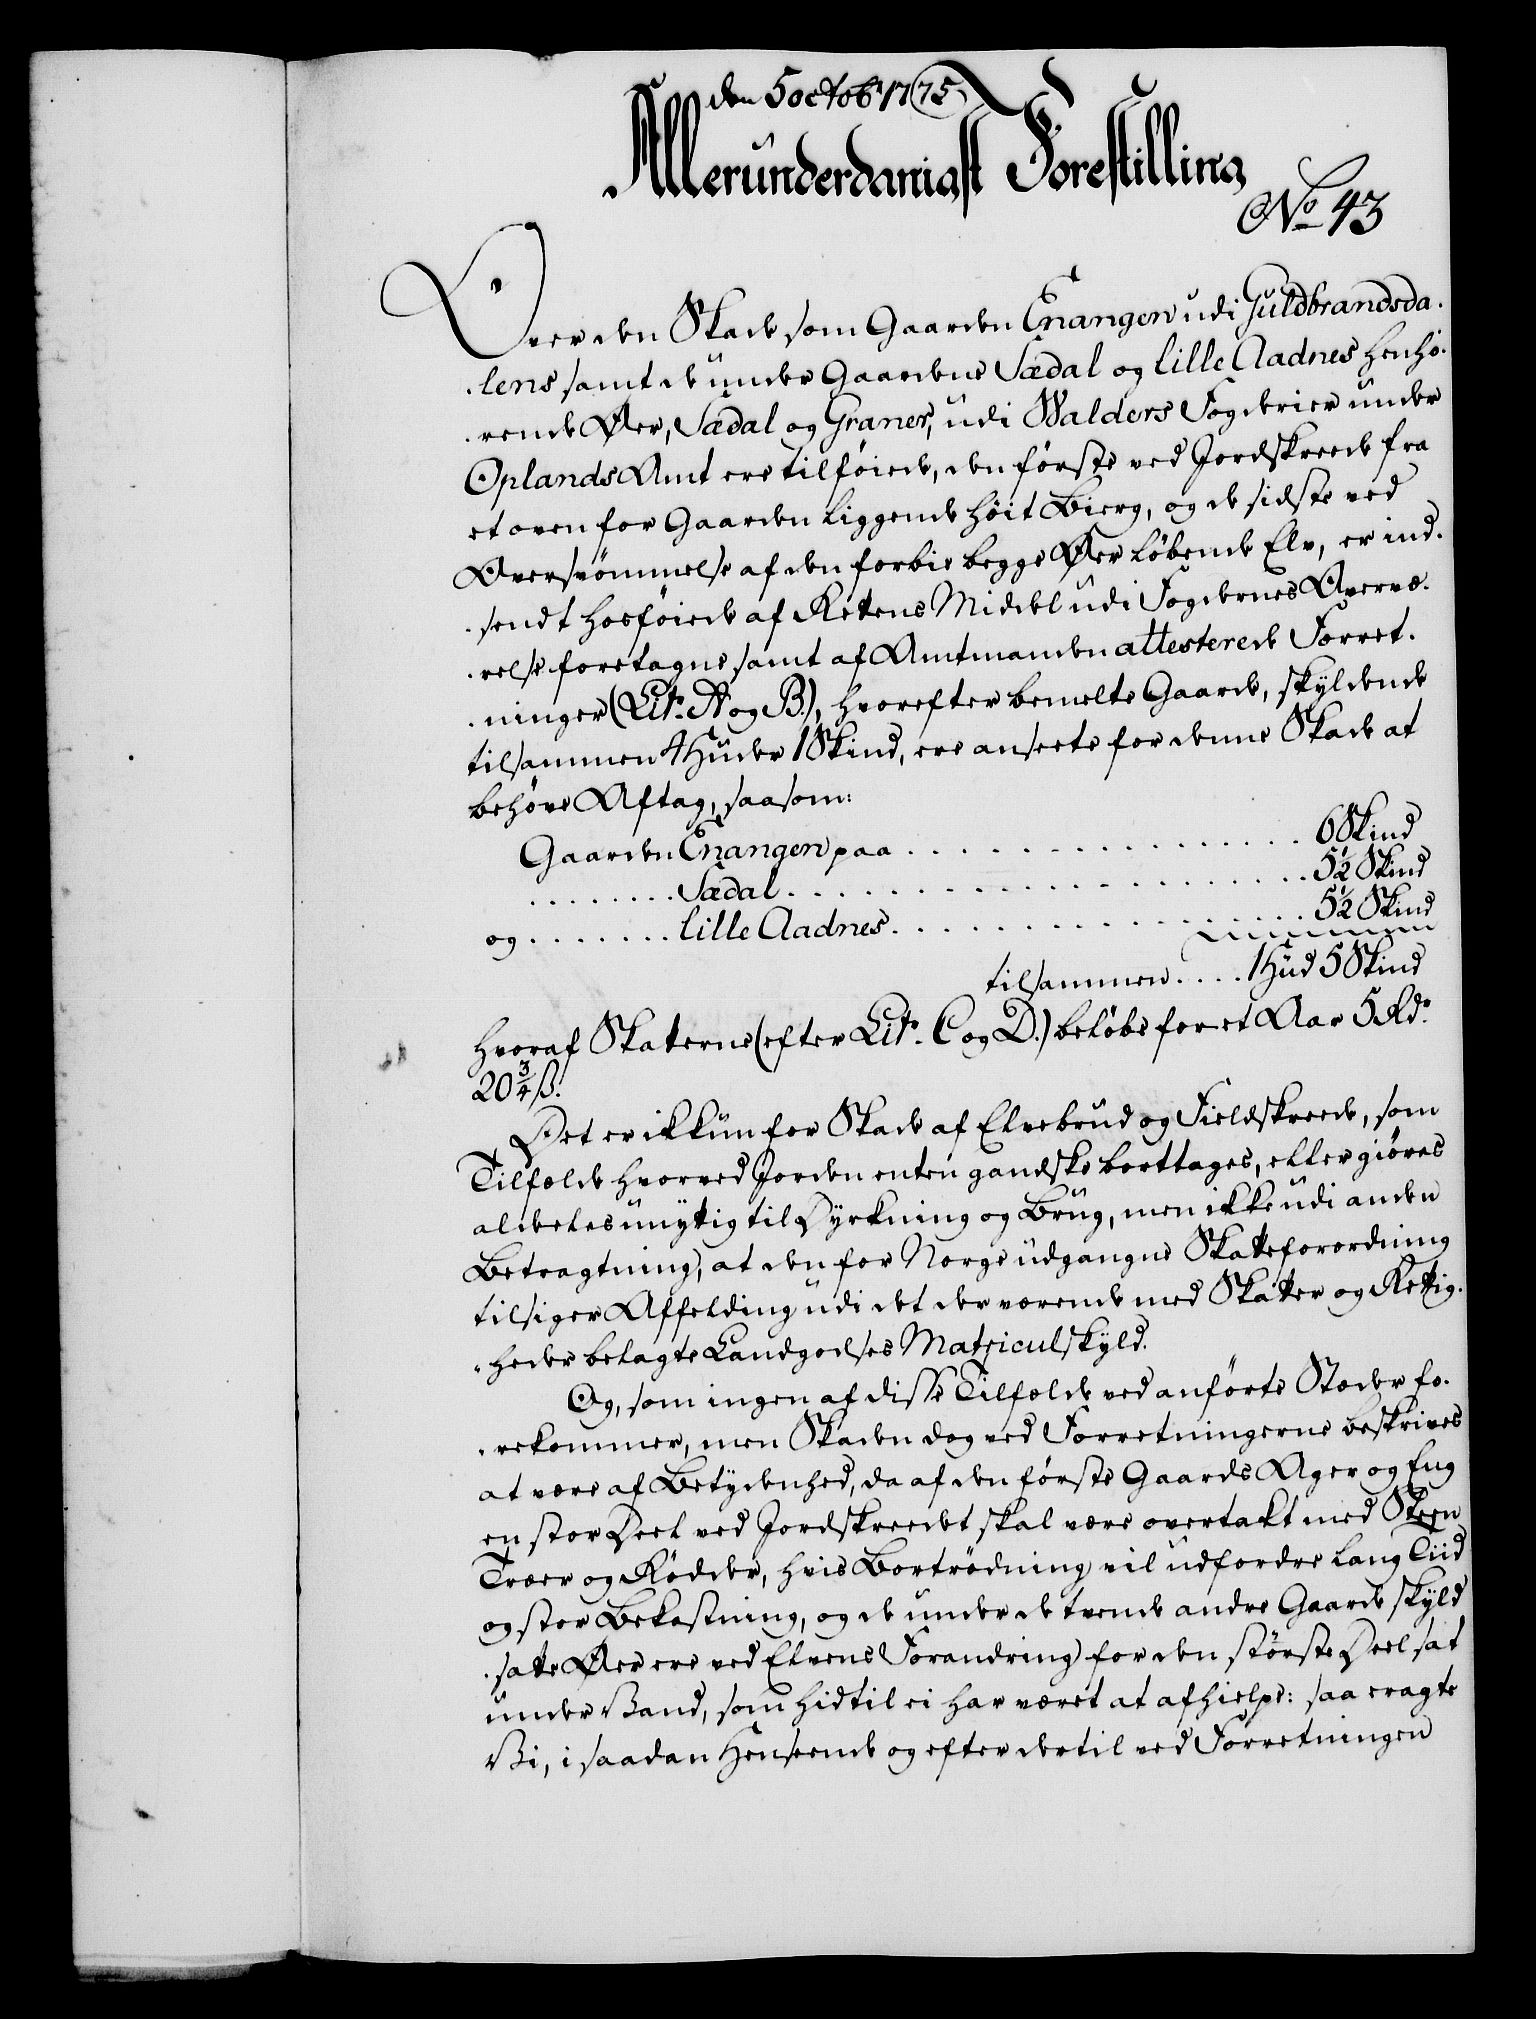 den 5 octob: 1775
Allerunderdanigst Forestilling
No 43
Over den Skade som Gaarden Enangen udi Guldbrandsda-
-lens samt de under Gaardene Sædal og lille Aadnes henhø-
-rende Øer, Sædal og Graner, udi Walders Fogderier under
Oplands Amt ere tilføiede, den første ved Jordskreede fra
et oven for Gaarden liggende høit Bierg, og de sidste ved
Oversvømmelse af den forbie begge Øer løbende Elv, er ind-
-sendt hosføiede af Rettens Middel udi Fogdernes Overvæ-
-relse foretagne samt af Amtmanden attesterede Forret-
-ninger (Litr. A og B.), hvorefter bemelte Gaarde, skyldende
tilsammen 4 Huder 1 Skind, ere ansette for denne Skade at
behøve Aftag, saasom:
Gaarden Enangen paa . . . . . . . . . . . . . . . . 6 Skind
. . . . . . . . Sædal . . . . . . . . . . . . . . . . . . . . 5½ Skind
og . . . . . . . lille Aadnes . . . . . . . . . . . . . . . . 5½ Skind
tilsammen . . . . 1 Hud 5 Skind
hvoraf Skatterne (efter Litr. C og D.) beløbe for et Aar 5 Rdr.
20¾ ß.
Det er ikkun for Skade af Elvebrud og Fieldskreede, som
Tilfælde hvorved Jorden enten gandske borttages, eller giøres
aldeeles unyttig til Dyrkning og Brug, men ikke udi anden
Betragtning, at den for Norge udgangne Skatteforordning
tilsiger Affelding udi det der værende med Skatter og Rettig-
-heder belagte Landgodses Matriculskyld.
Og, som ingen af disse Tilfælde ved anførte Stæder fo-
-rekommer, men Skaden dog ved Forretningerne beskrives
at være af Betydenhed, da af den første Gaards Ager og Eng
en stor Deel ved Jordskreedet skal være overtakt med Steen
Træer og Rødder, hvis Bortrødning vil udfordre lang Tiid
og stor Bekostning, og de under de tvende andre Gaarde skyld
-satte Øer ere ved Elvens Forandring for den største Deel sat
under Vand, som hidtil ei har været at afhielpe: saa eragte
Vi, i saadan Henseende og efter dertil ved Forretningen